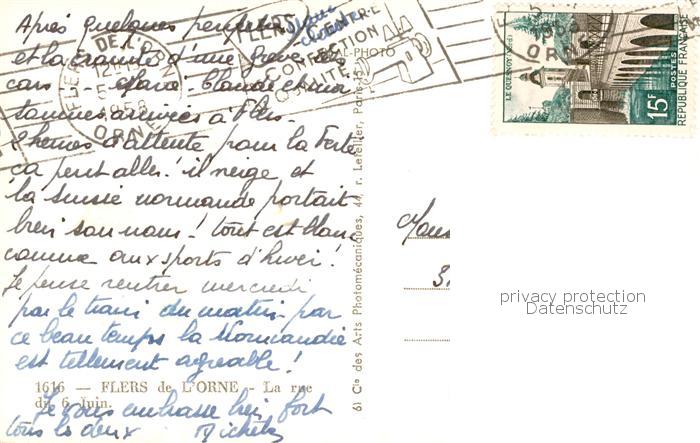 Après quelques peripeties
et la crainte d'une grève des
cars Marie-Claude et moi
sommes arrivées à Flers.
2 heures d'attente pour la Ferté
ça peut aller! il neige et
la suisse normande portait
bien son nom! tout est blanc
comme aux sports d'hiver!
Je pense rentrer mercredi
par le train du matin par
ce beau temps la Normandie
est tellement agréable!
1616 — FLERS de L'ORNE - La rue
du 6 Juin.
Je vous embrasse bien fort
tous les deux
FLERS CENTRE
CONFECTION
QUALITÉ
FLERS DE L'ORNE
ORNE
61 Cie des Arts Photomécaniques, 44, r. Letellier, Paris-15
LE QUESNOY (Nord)
15F
POSTES
REPUBLIQUE FRANÇAISE
privacy protection
Datenschutz